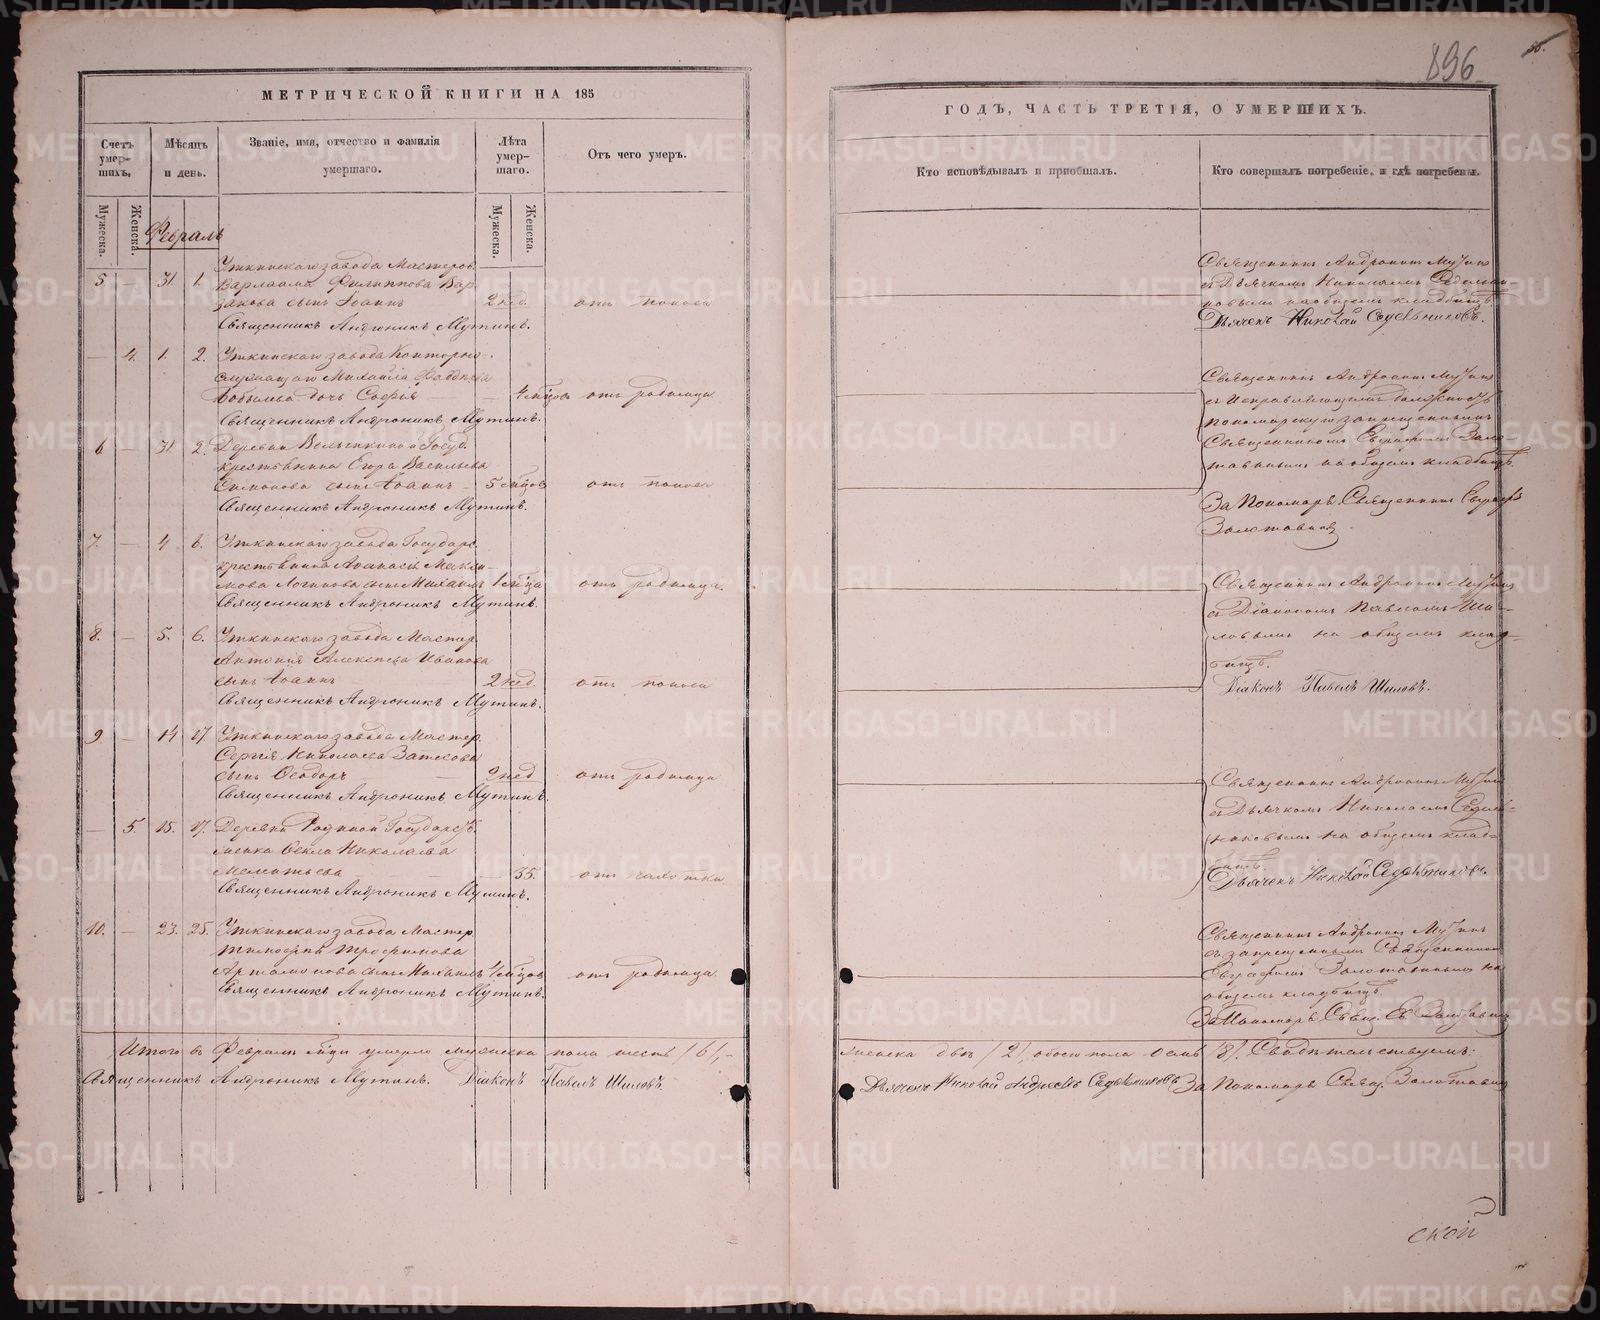 896
МЕТРИЧЕСКОЙ КНИГИ НА 185
ГОДЪ, ЧАСТЬ ТРЕТІЯ, О УМЕРШИХЪ.
Счетъ умершихъ.
Мѣсяцъ и день.
Званіе, имя, отчество и фамилія умершаго.
Лѣта умершаго.
Отъ чего умеръ.
Кто исповѣдывалъ и пріобщалъ.
Кто совершалъ погребеніе, и гдѣ погребены.
Мужеска.
Женска.
Мужеска.
Женска.
Февраль
5 — 31 1. Уткинскаго завода Мастеров.
Варлаама Филиппова Вар-
закова сынъ Іоаннъ 2 нед. отъ поноса
Священникъ Андроникъ Мутинъ.
Священникъ Андроникъ Мутинъ
съ Дьячкомъ Николаемъ Седельни-
ковымъ на общемъ кладбищѣ.
Дьячекъ Николай Седельниковъ.
— 4. 1. 2. Уткинскаго завода Конторно-
служащаго Михаила Фаддеева
дочь Софія — 4 мѣсцовъ отъ родимца
Священникъ Андроникъ Мутинъ.
Священникъ Андроникъ Мутинъ
съ исправляющимъ должность
пономарскую запрещеннымъ
Священникомъ Евграфомъ Золо-
тавинымъ на общемъ кладбищѣ.
За Пономаря Священникъ Евграфъ
Золотавинъ
6 — 31 2. Деревни Госуд.
крестьянина Егора Васильева
Симонова сынъ Іоаннъ 5 мѣсцовъ отъ поноса
Священникъ Андроникъ Мутинъ.
7. — 4 6. Уткинскаго завода Государс.
крестьянина Аѳанасія Макси-
мова Логинова сынъ Михаилъ 1 мѣсца отъ родимца.
Священникъ Андроникъ Мутинъ.
Священникъ Андроникъ Мутинъ
съ Діакономъ Павломъ Ши-
ловымъ на общемъ клад-
бищѣ.
Діаконъ Павелъ Шиловъ.
8. — 5. 6. Уткинскаго завода Мастер.
Антонія Алексѣева Иванова
сынъ Іоаннъ 2 нед. отъ поноса
Священникъ Андроникъ Мутинъ.
9 14 17 Уткинскаго завода Мастер.
Сергія Николаева
сынъ Ѳеодоръ нед отъ родимца
Священникъ Андроникъ Мутинъ.
Священникъ Андроникъ Мутинъ
съ Дьячкомъ Николаемъ Седель-
никовымъ на общемъ клад-
бищѣ.
Дьячекъ Николай Седельниковъ
— 5. 15. 17. Деревни Государст.
Ѳекла Николаева
35. отъ чахотки
Священникъ Андроникъ Мутинъ.
10. — 23. 25. Уткинскаго завода Мастер
Тимоѳея Трофимова
Артамонова сынъ Михаилъ мѣсцовъ отъ родимца
Священникъ Андроникъ Мутинъ.
Священникъ Андроникъ Мутинъ
съ запрещеннымъ Священникомъ
Евграфомъ Золотавинымъ на
общемъ кладбищѣ.
За Пономаря Свящ. Ев. Золотавинъ
Итого въ Февралѣ мѣсцѣ умерло мужеска пола шесть /6/,
женска двѣ /2/, обоего пола осмь /8/. Свидѣтельствуемъ:
Священникъ Андроникъ Мутинъ. Діаконъ Павелъ Шиловъ.
Дьячекъ Николай Андреевъ Седельниковъ За Пономаря Свящ. Золотавинъ
ской
METRIKI.GASO-URAL.RU